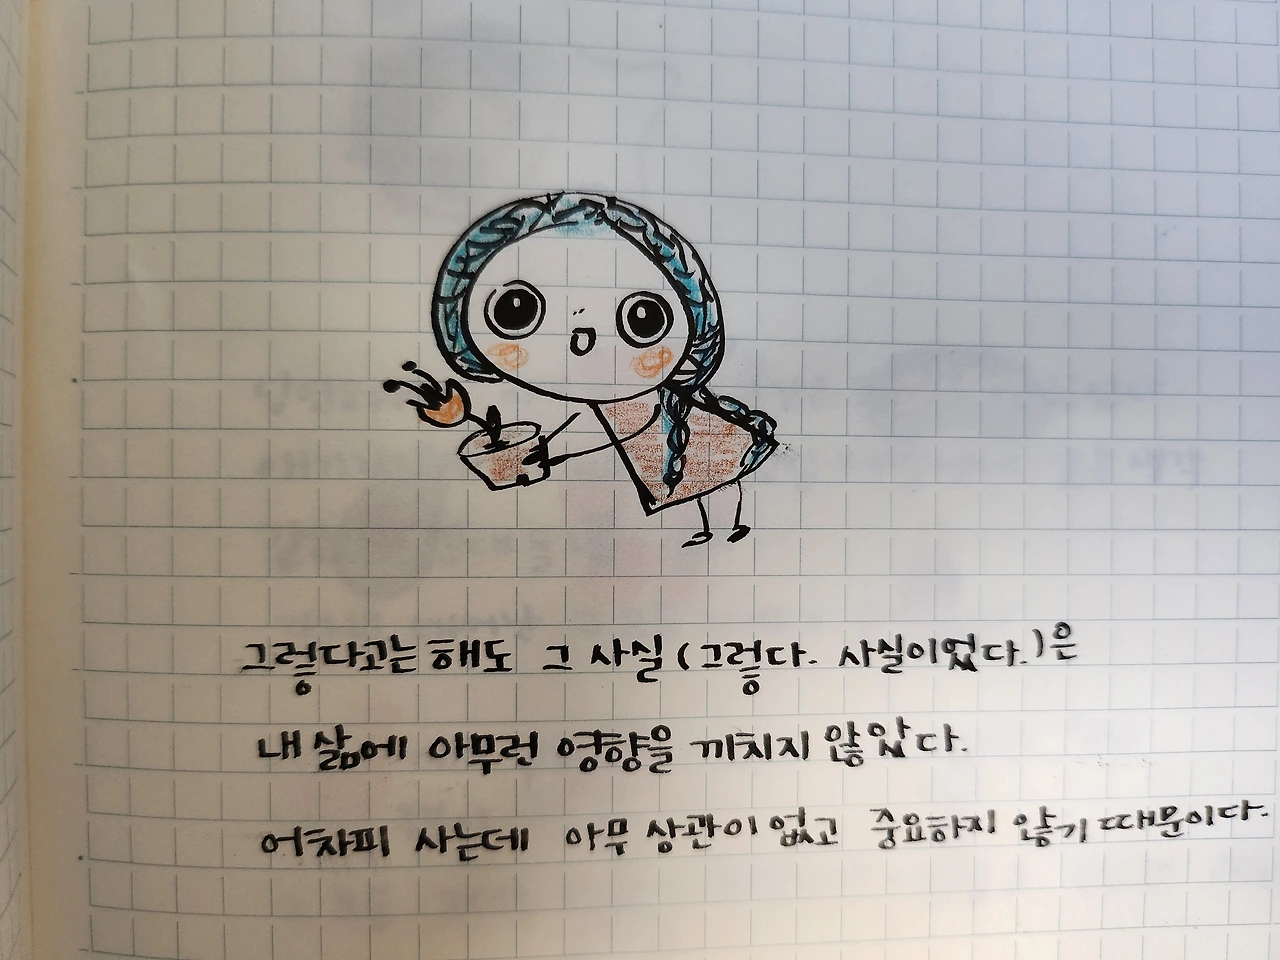 그렇다고는 해도 그 사실(그렇다. 사실이었다.)은
내 삶에 아무런 영향을 끼치지 않았다.
어차피 사는데 아무 상관이 없고 중요하지 않기 때문이다.